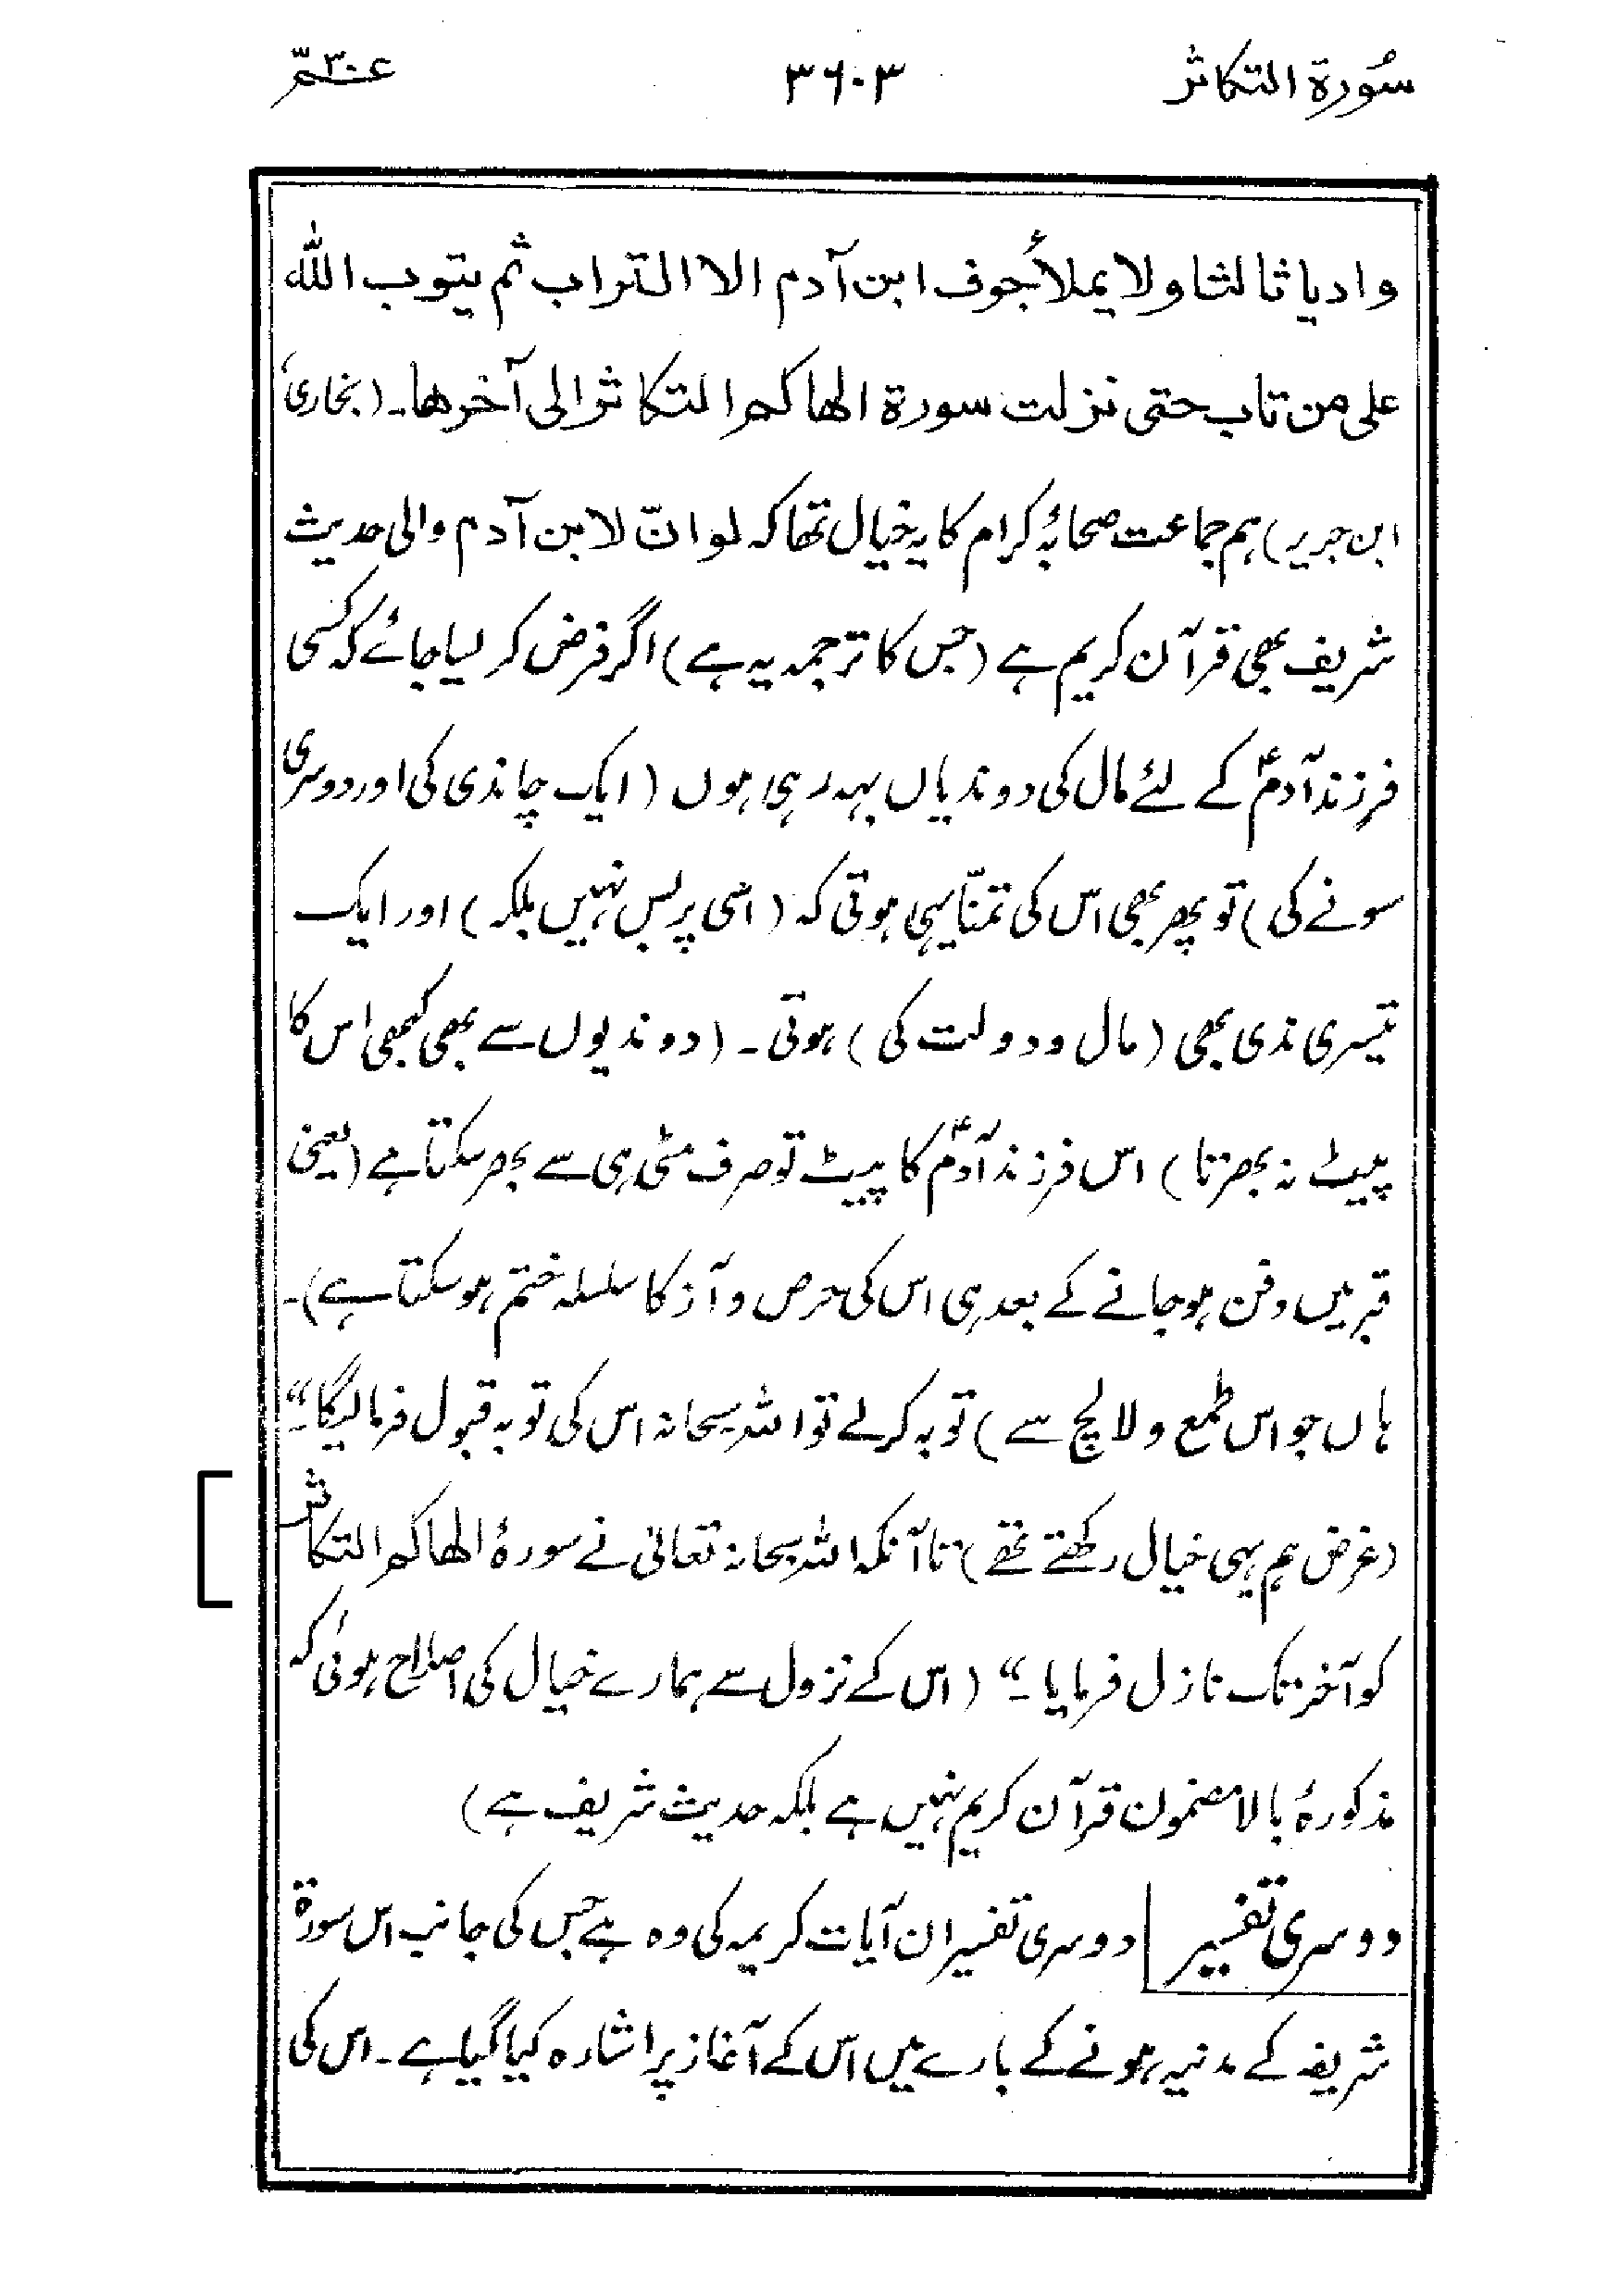 سُورۃ التکاثر ۳۶۰۳ عمّ ۳۰
وادیا ثالثا ولا یملأ جوف ابن آدم الا التراب ثم یتوب اللّٰه
علی من تاب حتی نزلت سورۃ الھاکم التکاثر الی آخرھا۔ (بخاری،
ابن جریر) ہم جماعت صحابۂ کرام کا یہ خیال تھا کہ لو انّ لابن آدم والی حدیث
شریف بھی قرآن کریم ہے (جس کا ترجمہ یہ ہے) اگر فرض کر لیا جائے کہ کسی
فرزند آدمؑ کے لئے مال کی دو ندیاں بہہ رہی ہوں (ایک چاندی کی اور دوسری
سونے کی) تو پھر بھی اس کی تمنّا یہی ہوتی کہ (اسی پر بس نہیں بلکہ) اور ایک
تیسری ندی بھی (مال و دولت کی) ہوتی۔ (دو ندیوں سے بھی کبھی اس کا
پیٹ نہ بھرتا) اس فرزند آدمؑ کا پیٹ تو صرف مٹی ہی سے بھر سکتا ہے (یعنی
قبر میں دفن ہو جانے کے بعد ہی اس کی حرص و آز کا سلسلہ ختم ہو سکتا ہے)۔
ہاں جو اس طمع و لالچ سے) توبہ کرلے تو اللہ سبحانہ اس کی توبہ قبول فرمالیگا۔“
(غرض ہم یہی خیال رکھتے تھے) تا آنکہ اللہ سبحانہ تعالیٰ نے سورۂ الھاکم التکاثر
کو آخر تک نازل فرمایا۔“ (اس کے نزول سے ہمارے خیال کی اصلاح ہوئی کہ
مذکورۂ بالا مضمون قرآن کریم نہیں ہے بلکہ حدیث شریف ہے)
دوسری تفسیر دوسری تفسیر ان آیات کریمہ کی وہ ہے جس کی جانب اس سورۃ
شریفہ کے مدنیہ ہونے کے بارے میں اس کے آغاز پر اشارہ کیا گیا ہے۔ اس کی